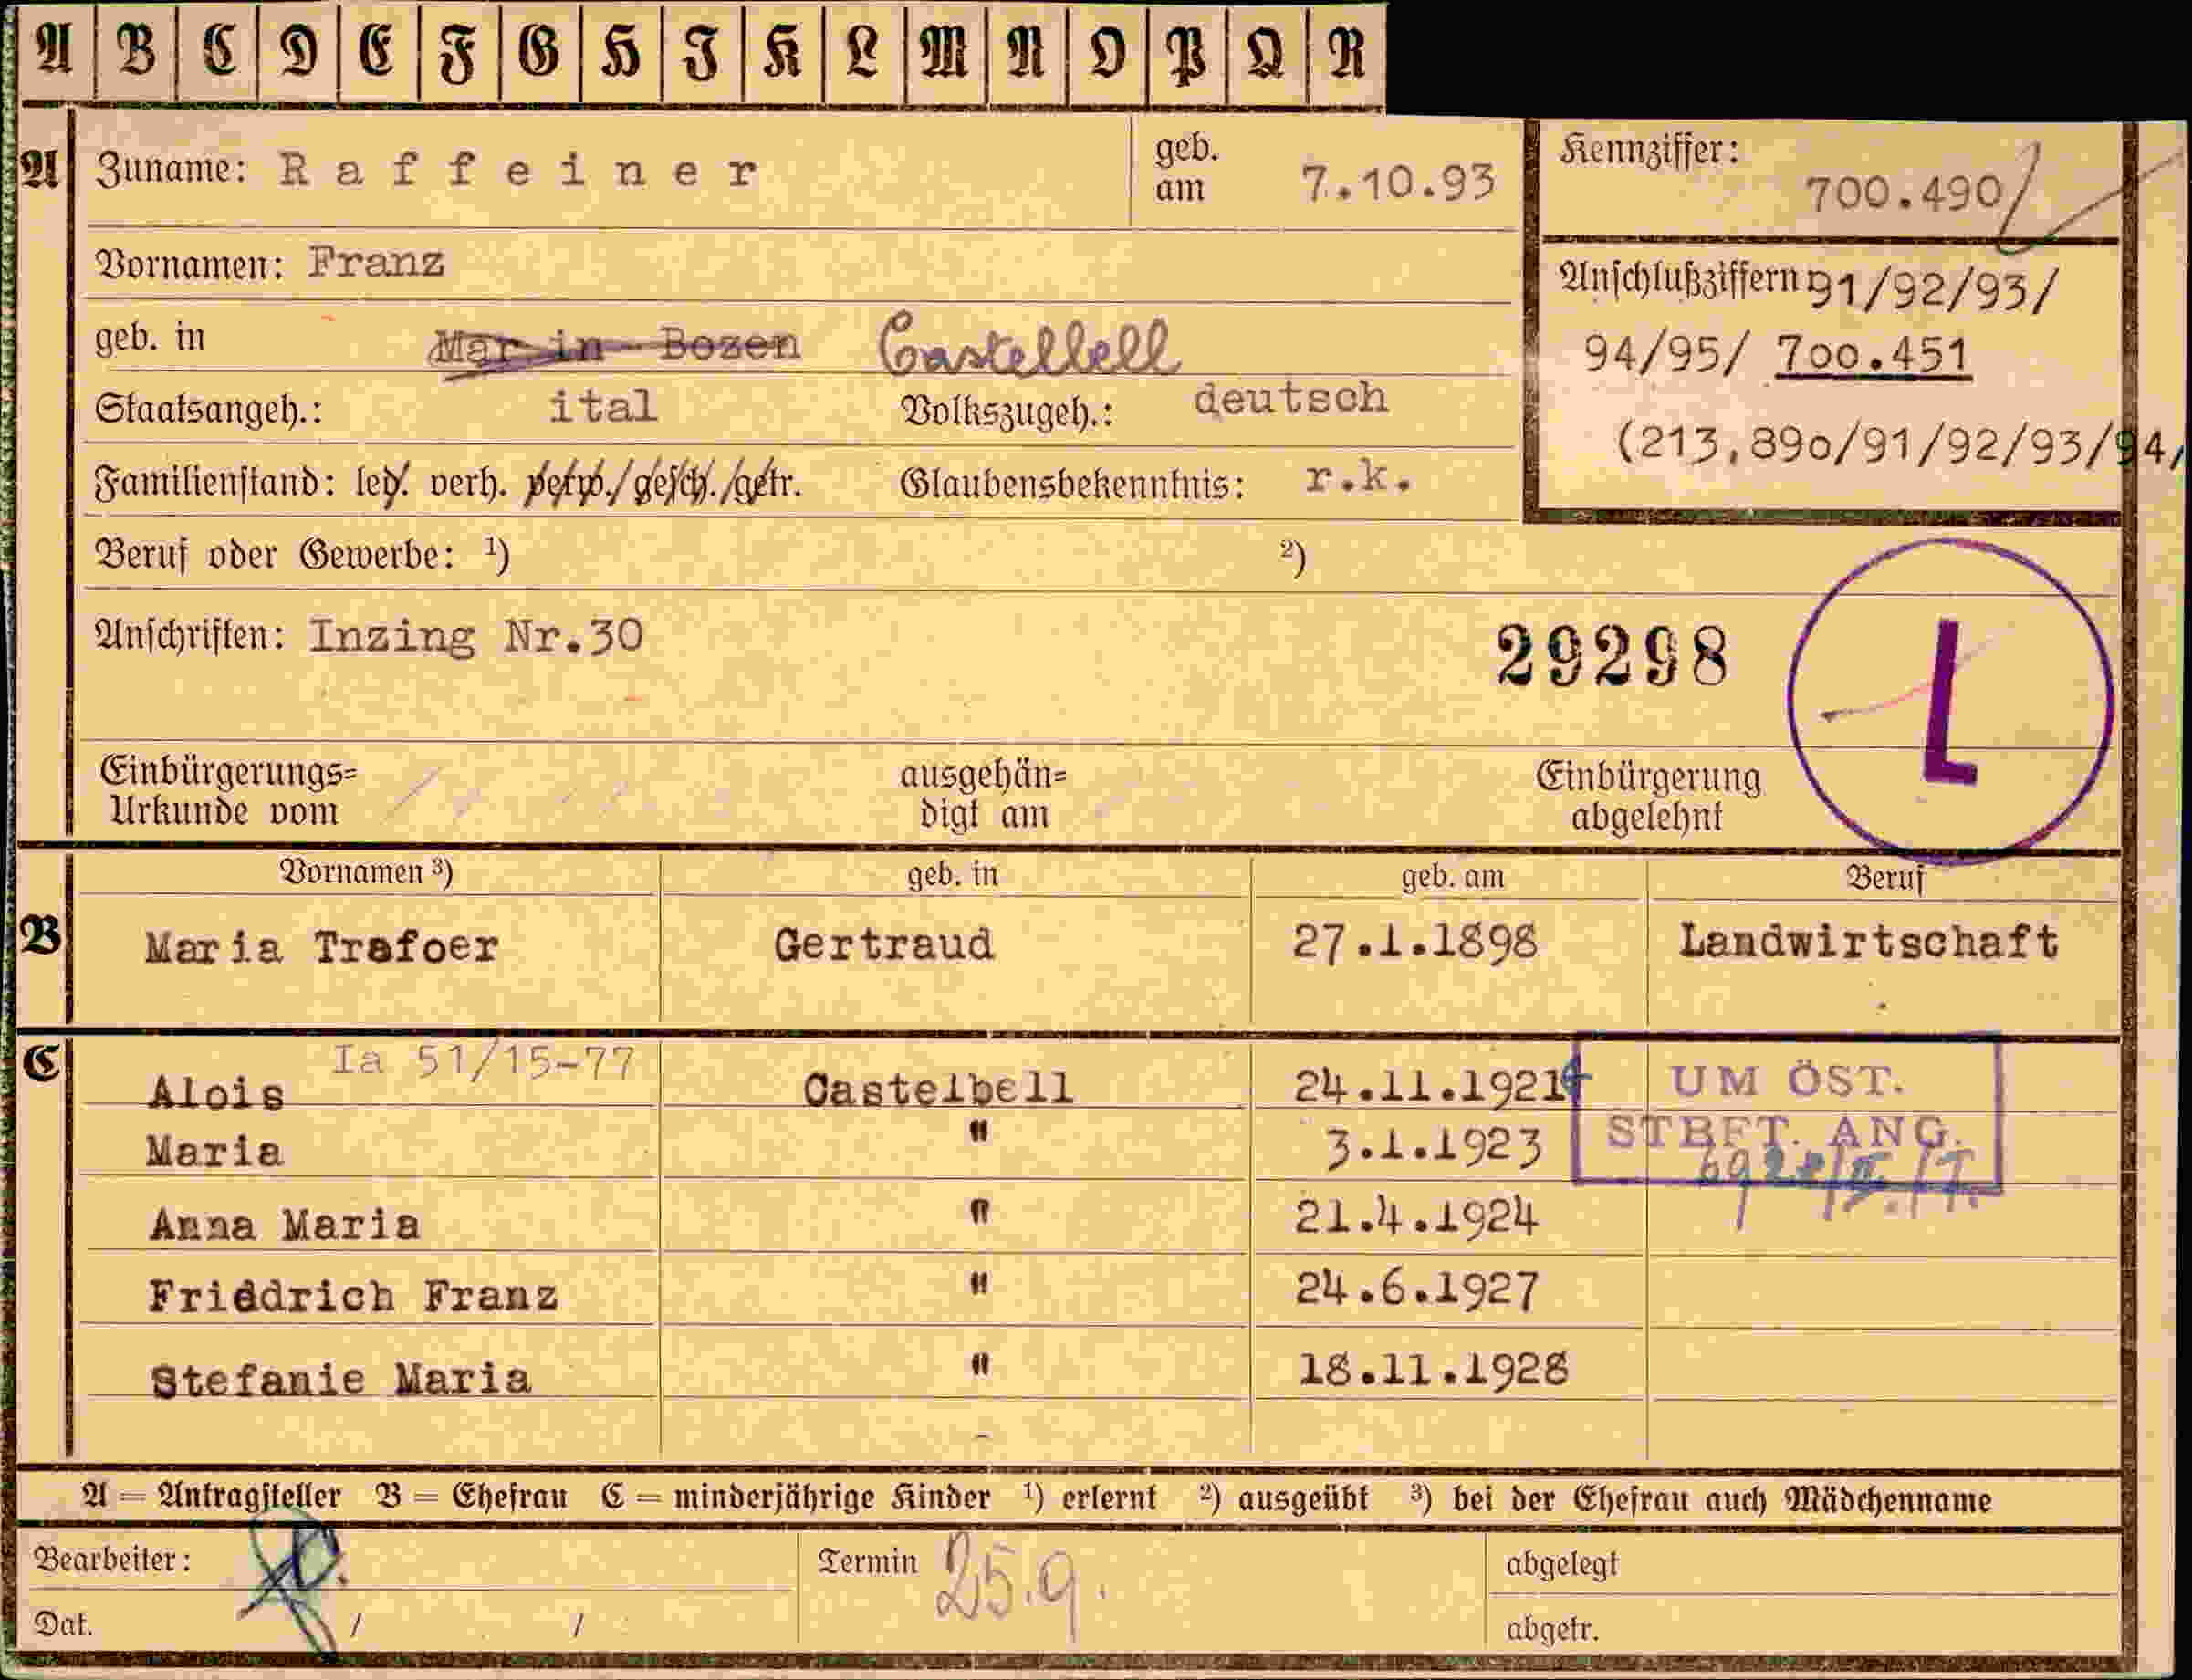 A B C D E F G H J K L M N O P Q R
A Zuname: Raffeiner geb. am 7.10.93 Kennziffer: 700.490/
Vornamen: Franz Anschlußziffern 91/92/93/
geb. in Mar in Bozen Castelbell 94/95/ 7oo.451
Staatsangeh.: ital Volkszugeh.: deutsch (213,89o/91/92/93/94/
Familienstand: led. verh. verw./gesch./getr. Glaubensbekenntnis: r.k.
Beruf oder Gewerbe: ¹) ²)
Anschriften: Inzing Nr.30 29298 L
Einbürgerungs= ausgehän= Einbürgerung
Urkunde vom digt am abgelehnt
Vornamen ³) geb. in geb. am Beruf
B Maria Trafoer Gertraud 27.1.1898 Landwirtschaft
C Ia 51/15-77
Alois Castelbell 24.11.1921 UM ÖST.
Maria " 3.1.1923 STBFT. ANG.
Anna Maria " 21.4.1924
Friedrich Franz " 24.6.1927
Stefanie Maria " 18.11.1928
A = Antragsteller B = Ehefrau C = minderjährige Kinder ¹) erlernt ²) ausgeübt ³) bei der Ehefrau auch Mädchenname
Bearbeiter: Termin 25.9. abgelegt
Dat. / / abgetr.